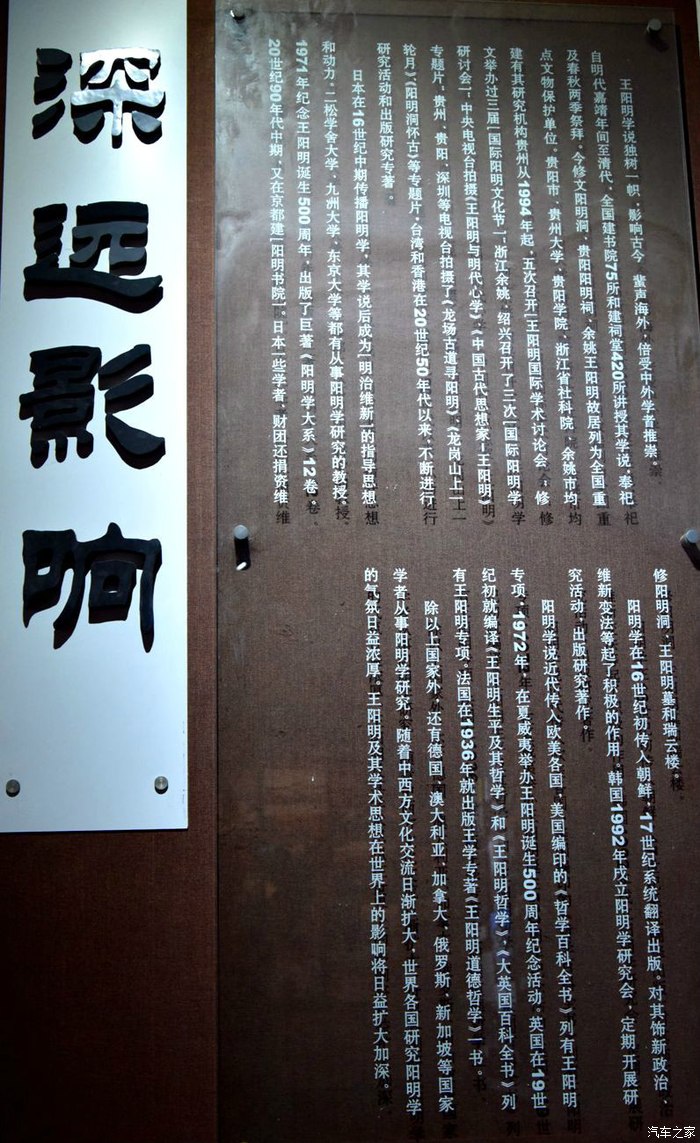 深远影响
王阳明学说独树一帜，影响古今，蜚声海外，倍受中外学者推崇。
自明代嘉靖年间至清代，全国建书院75所和建祠堂420所讲授其学说，奉祀
及春秋两季祭拜。今修文阳明洞、贵阳阳明祠、余姚王阳明故居列为全国重
点文物保护单位。贵阳市、贵州大学、贵阳学院、浙江省社科院、余姚市均
建有其研究机构贵州从1994年起，五次召开「王阳明国际学术讨论会」修
文举办过三届「国际阳明文化节」，浙江余姚、绍兴召开了三次「国际阳明学
研讨会」，中央电视台拍摄《王阳明与明代心学》、《中国古代思想家－王阳明》
专题片，贵州、贵阳、深圳等电视台拍摄了《龙场古道寻阳明》、《龙岗山上一
轮月》、《阳明洞怀古》等专题片，台湾和香港在20世纪50年代以来，不断进行
研究活动和出版研究专著。
日本在16世纪中期传播阳明学，其学说后成为「明治维新」的指导思想
和动力，二松学舍大学、九洲大学、东京大学等都有从事阳明学研究的教授。
1971年纪念王阳明诞生500周年，出版了巨著《阳明学大系》12卷。
20世纪90年代中期，又在京都建「阳明书院」。日本一些学者、财团还捐资维
修阳明洞、王阳明墓和瑞云楼。
阳明学在16世纪初传入朝鲜，17世纪系统翻译出版。对其饰新政治、
维新变法等起了积极的作用。韩国1992年戍立阳明学研究会，定期开展研
究活动，出版研究著作。
阳明学说近代传入欧美各国，美国编印的《哲学百科全书》列有王阳明
专项，1972年，在夏威夷举办王阳明诞生500周年纪念活动。英国在19世
纪初就编译《王阳明生平及其哲学》和《王阳明哲学》，《大英国百科全书》列
有王阳明专项。法国在1936年就出版王学专著《王阳明道德哲学》一书。
除以上国家外，还有德国、澳大利亚、加拿大、俄罗斯、新加坡等国家
学者从事阳明学研究。随着中西方文化交流日渐扩大，世界各国研究阳明学
的气氛日益浓厚。王阳明及其学术思想在世界上的影响将日益扩大加深。
汽车之家